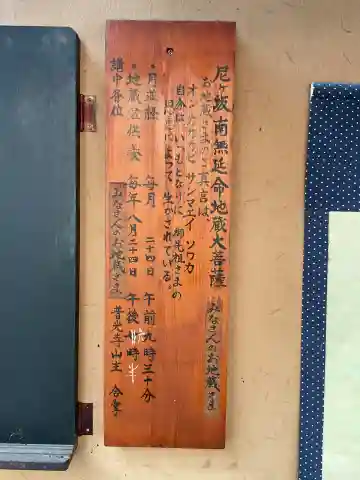 尼ヶ坂 南無延命地蔵大菩薩
みなさんのお地蔵さま
お地蔵さまのご真言は、
オン カカカビ サンマエイ ソワカ
自分はいつもとなりに 御先祖さまの
によって 生かされている。
・月並経 毎月 二十四日 午前九時三十分
・地蔵盆供養 毎年八月二十四日 午後 時半
みなさんのお地蔵さま
講中各位
普光寺山主 合掌